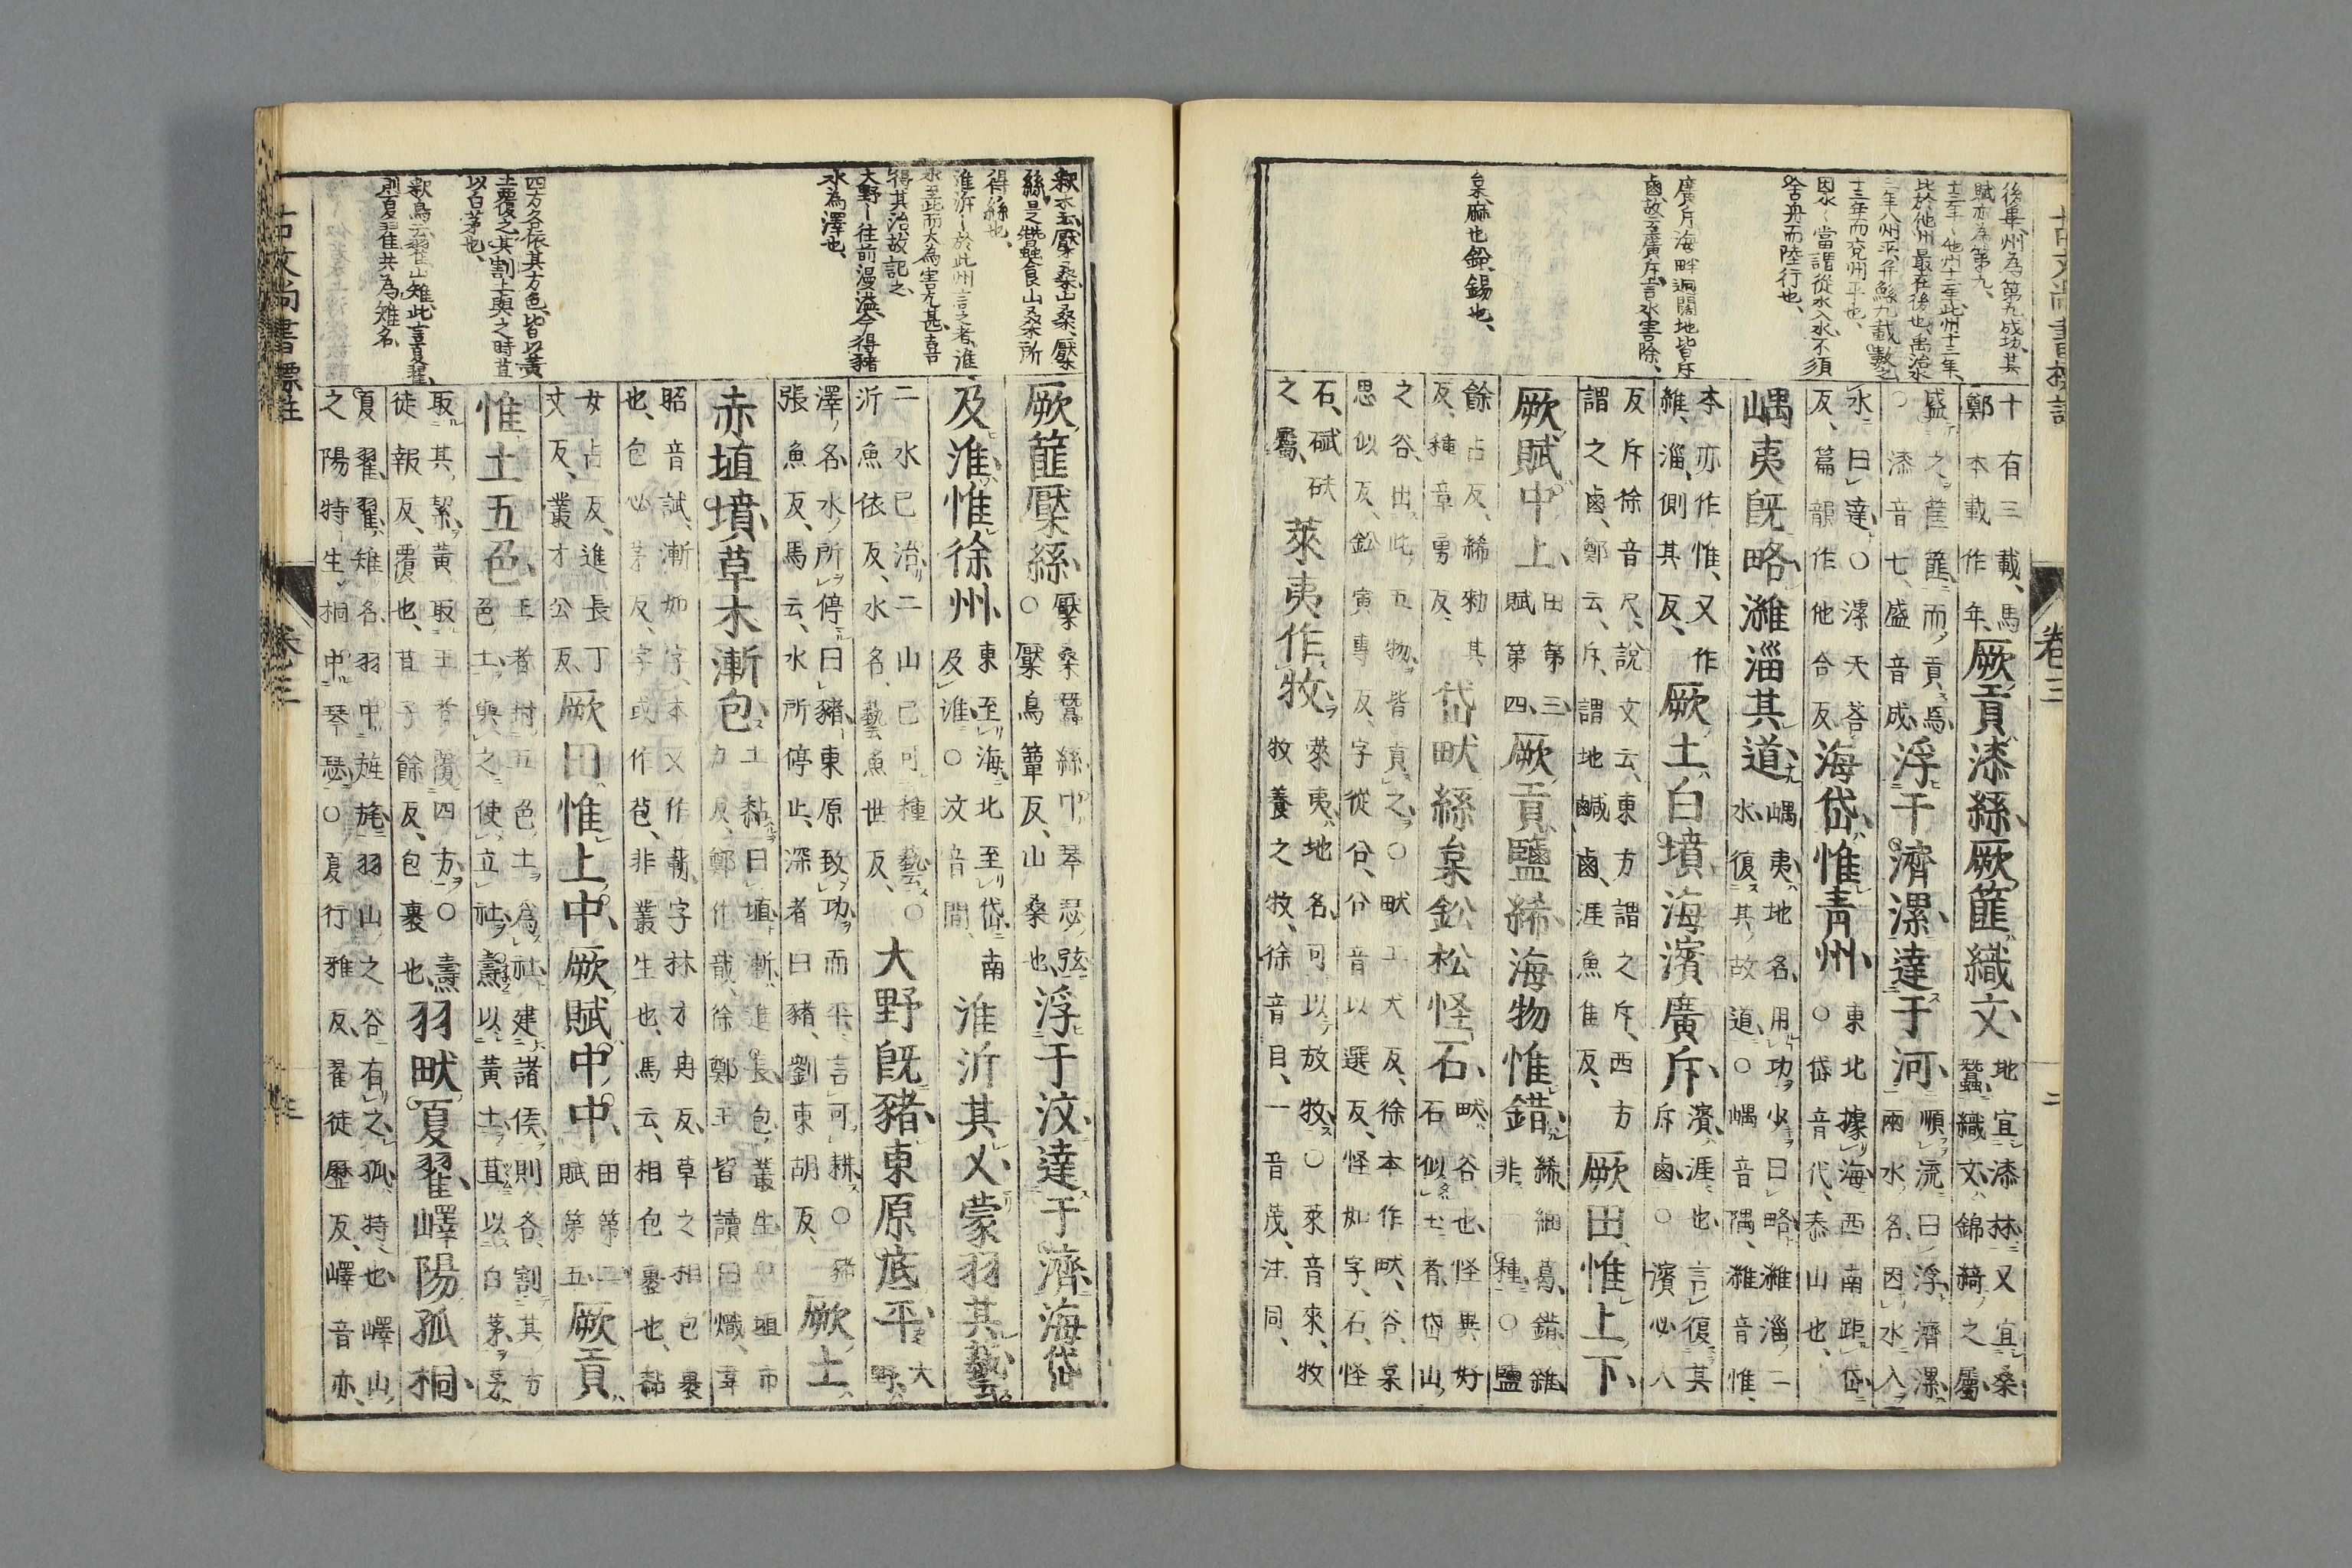 後畢州為第九成功其
賦亦為第九
比於他州最在後也禹治水
因水當謂從水入水不須
舍舟而陸行也
廣斥海畔迥闊地皆斥
鹵故云廣斥言水害除
枲麻也鈆錫也
十有三載馬
鄭本載作年厥貢漆絲厥篚織文地宜漆林又宜桑
蠶織文錦綺之屬
盛之筐篚而貢焉
○漆音七盛音成浮于濟漯達于河順流曰浮濟漯
兩水名因水入
水曰達○漯天荅
反篇韻作他合反海岱惟青州東北據海西南距岱
○岱音代泰山也
嵎夷既略濰淄其道嵎夷地名用功少曰略濰淄二
水復其故道○嵎音隅濰音惟
本亦作惟又作
維淄側其反厥土白墳海濱廣斥濱涯也言復其
斥鹵○濱必人
反斥徐音尺說文云東方謂之斥西方
謂之鹵鄭云斥謂地鹹鹵涯魚隹反厥田惟上下
厥賦中上田第三
賦第四厥貢鹽絺海物惟錯絺細葛錯雜
非一種○鹽
餘占反絺勑其
反種章勇反岱畎絲枲鈆松怪石畎谷也怪異好
石似玉者岱山
之谷出此五物皆貢之○畎工犬反徐本作畎谷枲
思似反鈆寅專反字從㕣㕣音以選反怪如字石怪
石碔砆
之屬萊夷作牧萊夷地名可以放牧○萊音來牧
牧養之牧徐音目一音茂注同
卷三
二
釈木云檿桑山桑檿
絲是蠶食山桑所
得絲也
淮沂於此州言之者淮
水至此而大為害尤甚喜
得其治故記之
大野往前漫溢今得豬
水為澤也
四方各依其方色皆以黃
土覆之其割土與之時苴
以白茅也
釈鳥云翟山雉此言夏翟
則夏翟共為雉名
厥篚檿絲檿桑蠶絲中琴瑟弦
○檿烏簟反山桑也浮于汶達于濟海岱
及淮惟徐州東至海北至岱南
及淮○汶音問淮沂其乂蒙羽其藝
二水已治二山已可種藝○
沂魚依反水名藝魚世反大野既豬東原底平大
野
澤名水所停曰豬東原致功而平言可耕○豬
張魚反馬云水所停止深者曰豬劉東胡反厥土
赤埴墳草木漸包土黏曰埴漸進長包叢生○埴市
力反鄭作戠徐鄭王皆讀曰熾韋
昭音試漸如字本又作蔪字林才冉反草之相包裹
也包必茅反字或作苞非叢生也馬云相包裹也黏
女占反進長丁
丈反叢才公反厥田惟上中厥賦中中田第二
賦第五厥貢
惟土五色王者封五色土為社建諸侯則各割其方
色土與之使立社燾以黃土苴以白茅茅
取其絜黃取王者覆四方○燾
徒報反覆也苴子餘反包裹也羽畎夏翟嶧陽孤桐
夏翟翟雉名羽中旌旄羽山之谷有之孤特也嶧山
之陽特生桐中琴瑟○夏行雅反翟徒歷反嶧音亦
古文尚書標註
卷三
三